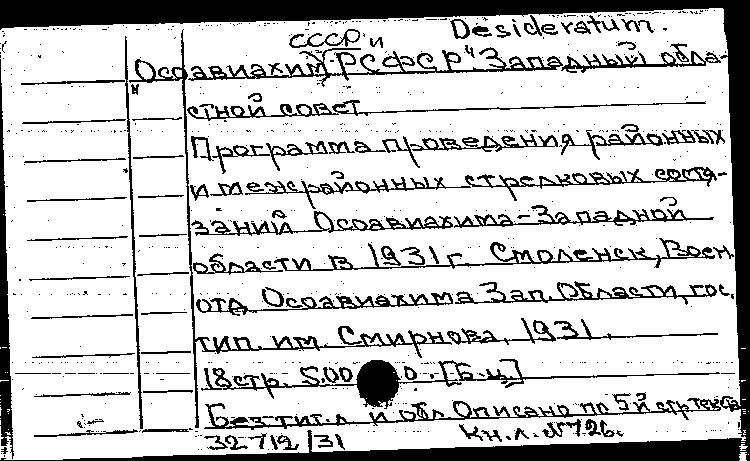 Desideratum.
СССР и
"Осоавиахим" РСФСР. Западный обла-
стной совет.
Программа проведения районных
и межрайонных стрелковых состя-
заний Осоавиахима Западной
области в 1931 г. Смоленск, Воен.
отд. Осоавиахима Зап. Области, гос.
тип. им. Смирнова, 1931.
18 стр. 500 э. [Б.ц.]
Без тит. л. и обл. Описано по 5й стр текста
32.712/31 Кн. л. № 726.